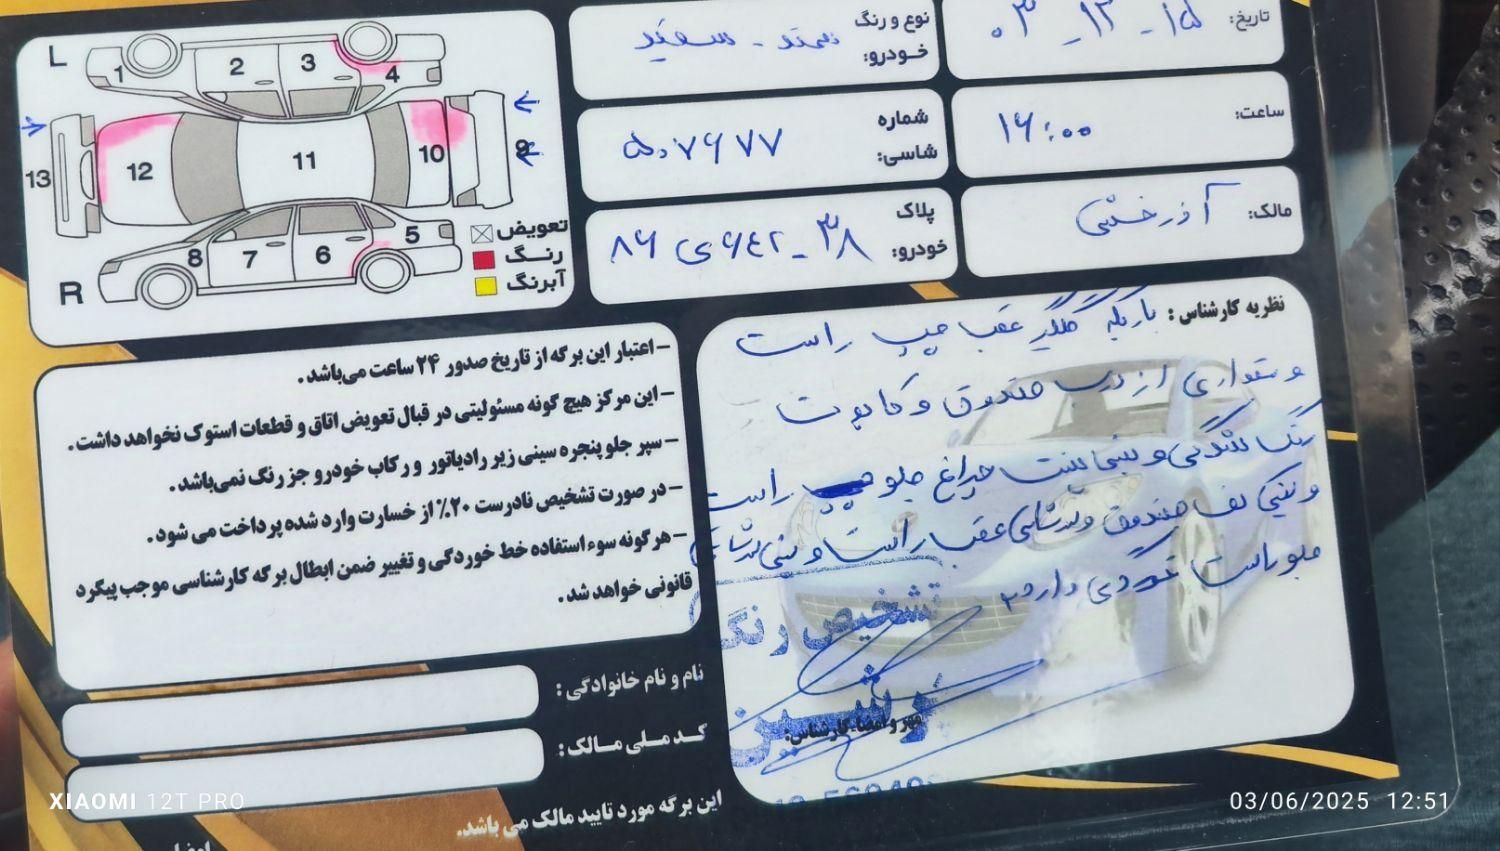 تاریخ: ۰۳ - ۱۲ - ۱۵
نوع و رنگ خودرو: سمند - سفید
ساعت: ۱۶:۰۰
شماره شاسی: ۵۰۷۶۷۷
مالک: آذرخشی
پلاک خودرو: ۳۸ - ۶۴۲ ی ۸۶
L
1 2 3 4
13 12 11 10 9
8 7 6 5
R
تعویض
رنگ
آبرنگ
نظریه کارشناس: باریکه گلگیر عقب چپ راست
و مقداری از درب صندوق و کاپوت
رنگ شدگی و سینی پشت چراغ جلو راست
و سینی کف صندوق و شاسی عقب راست و سینی
جلو راست خوردگی دارد
تشخیص رنگ
مهر و امضاء کارشناس:
– اعتبار این برگه از تاریخ صدور ۲۴ ساعت می‌باشد.
– این مرکز هیچ گونه مسئولیتی در قبال تعویض اتاق و قطعات استوک نخواهد داشت.
– سپر جلو پنجره سینی زیر رادیاتور و رکاب خودرو جز رنگ نمی‌باشد.
– در صورت تشخیص نادرست ۲۰٪ از خسارت وارد شده پرداخت می شود.
– هرگونه سوء استفاده خط خوردگی و تغییر ضمن ابطال برگه کارشناسی موجب پیگرد
قانونی خواهد شد.
نام و نام خانوادگی:
کد ملی مالک:
این برگه مورد تایید مالک می باشد.
XIAOMI 12T PRO
03/06/2025 12:51